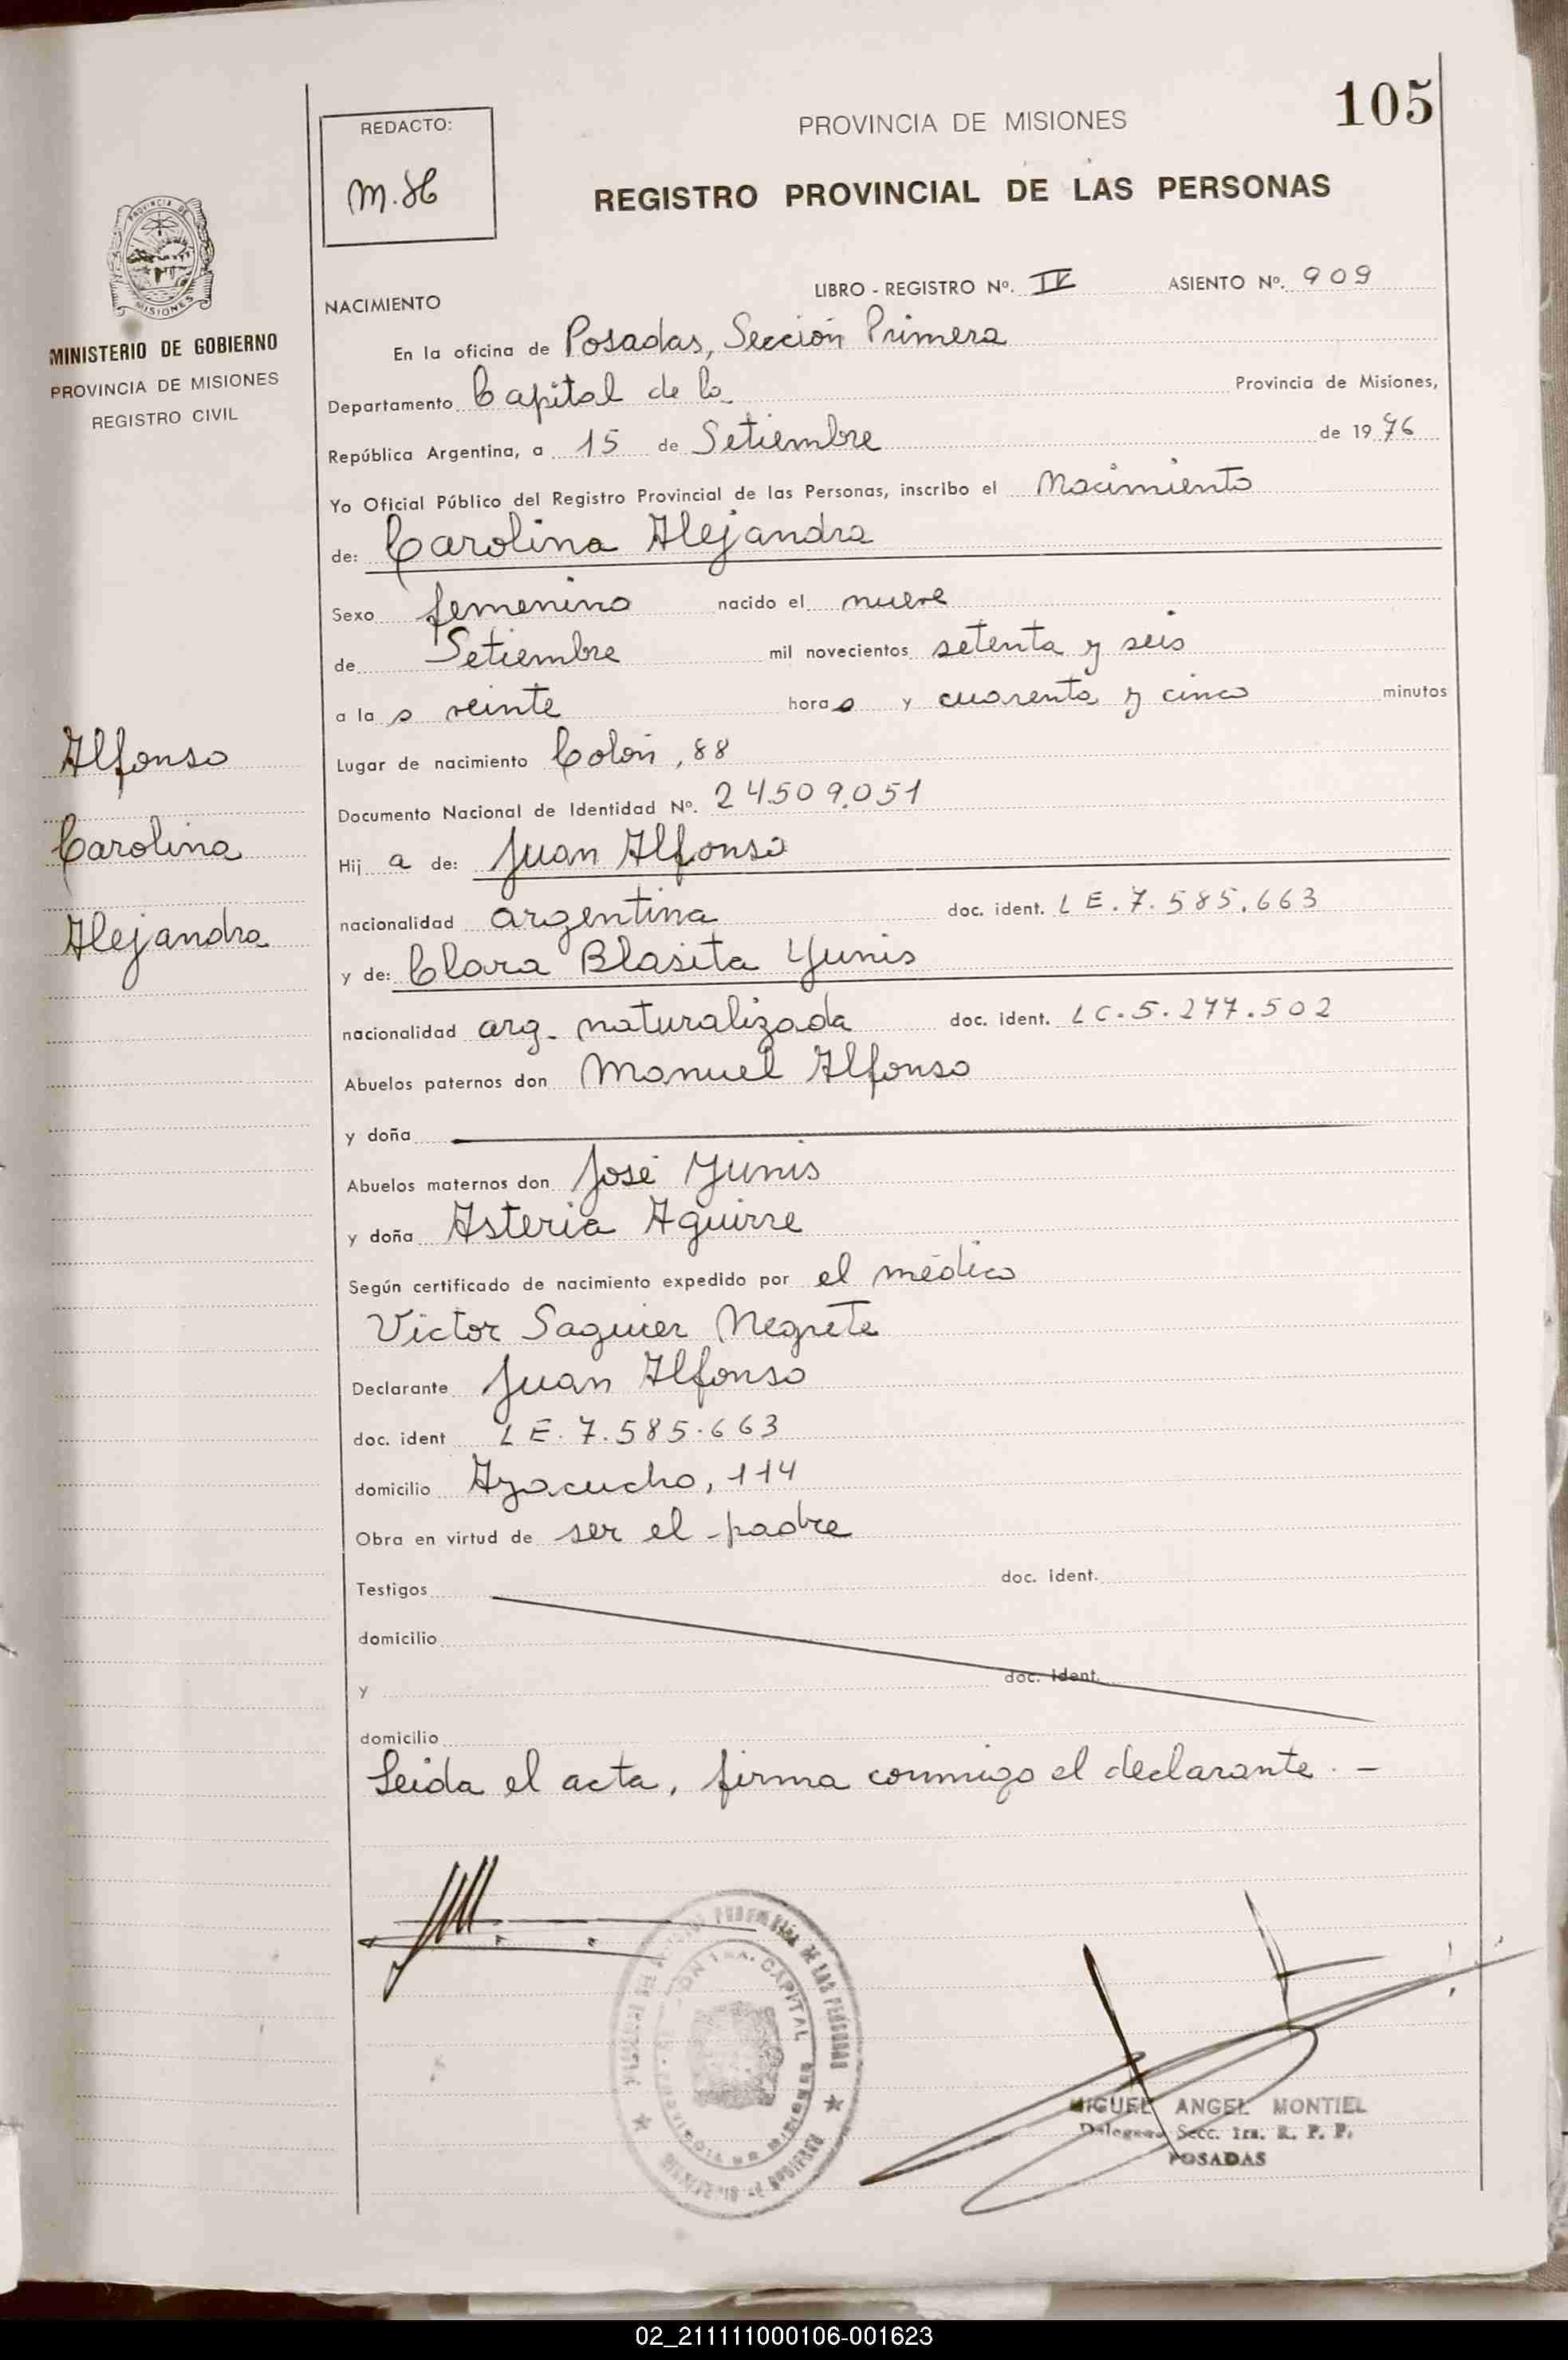 105
REDACTO:
M.H
PROVINCIA DE MISIONES
REGISTRO PROVINCIAL DE LAS PERSONAS
PROVINCIA DE
MISIONES
MINISTERIO DE GOBIERNO
PROVINCIA DE MISIONES
REGISTRO CIVIL
Alfonso
Carolina
Alejandra
LIBRO - REGISTRO Nº. IV ASIENTO Nº. 909
NACIMIENTO
En la oficina de Posadas, Sección Primera
Departamento Capital de la Provincia de Misiones,
República Argentina, a 15 de Setiembre de 1976
Yo Oficial Público del Registro Provincial de las Personas, inscribo el Nacimiento
de: Carolina Alejandra
Sexo femenino nacido el nueve
de Setiembre mil novecientos setenta y seis
a la s veinte hora s y cuarenta y cinco minutos
Lugar de nacimiento Colón, 88
Documento Nacional de Identidad Nº. 24.509.051
Hij a de: Juan Alfonso
nacionalidad argentina doc. ident. LE. 7.585.663
y de: Clara Blasita Yunis
nacionalidad arg. naturalizada doc. ident. LC. 5.277.502
Abuelos paternos don Manuel Alfonso
y doña
Abuelos maternos don José Yunis
y doña Asteria Aguirre
Según certificado de nacimiento expedido por el médico
Victor Saguier Negrete
Declarante Juan Alfonso
doc. ident LE. 7.585.663
domicilio Ayacucho, 114
Obra en virtud de ser el padre
Testigos doc. ident.
domicilio
y doc. ident.
domicilio
Leida el acta, firma conmigo el declarante. -
CAPITAL
DE LAS PERSONAS
MIGUEL ANGEL MONTIEL
Delegado Secc. 1ra. R. P. P.
POSADAS
02_211111000106-001623